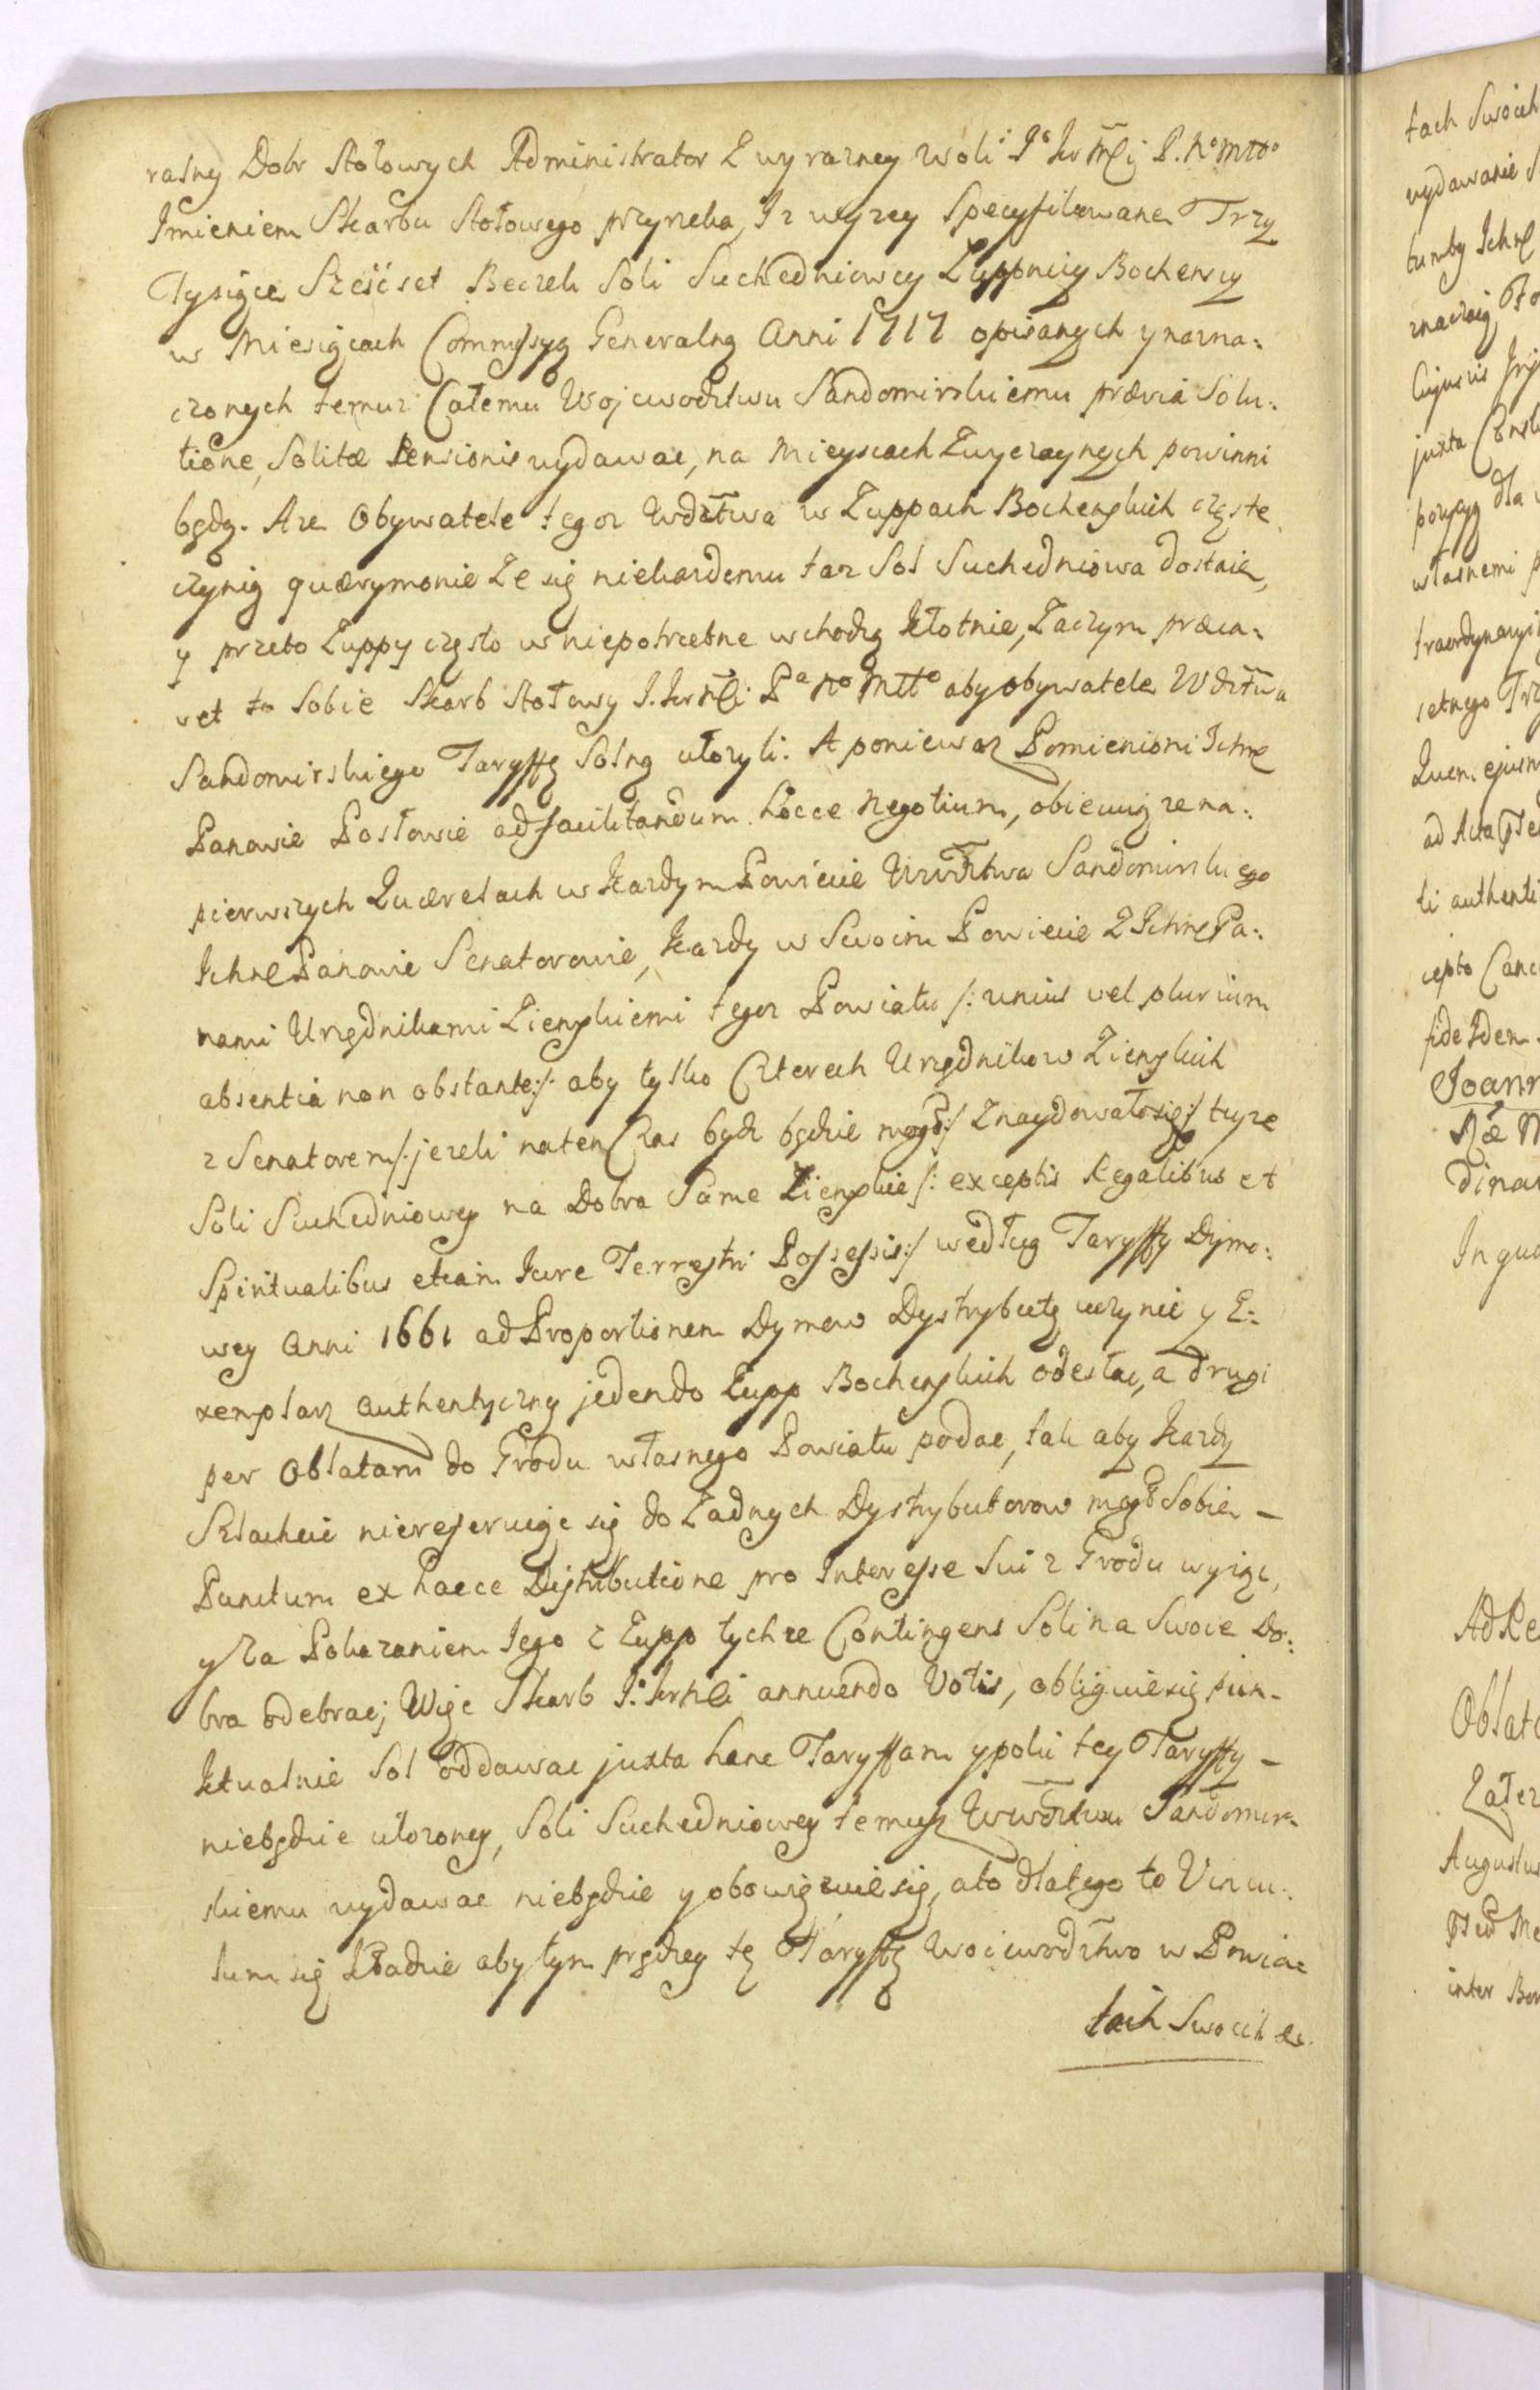 ralny Dobr Stołowych Administrator Z wyrazney woli Jo Kr Mći P. No Mtto
Imieniem Skarbu Stołowego przyrzeka, Iz wyzey Specyfikowane Trzy
Tysiące Sześćset Beczek Soli Suchedniowey Zuppnicy Bochenscy
w Miesiącach Commissyą Generalną Anni 1717 opisanych y nazna:
czonych temuz Całemu Wojewodztwu Sandomirskiemu prævia Solu:
tione, Solitæ Pensionis wydawac, na Mieyscach Zwyczaynych powinni
będą. A ze Obywatele tegoz Wdztwa w Zuppach Bochenskich częste
czynią quærymonie Ze się niekazdemu taz Sol Suchedniowa dostaie,
y przeto Zuppy często w niepotrzebne wchodzą Kłotnie, Zaczym præca:
vet to Sobie Skarb Stołowy J. Kr Mći Pa No Mtto aby obywatele Wdztwa
Sandomirskiego Taryffę Solną ułozyli. A poniewaz Pomienioni Ichmć
Panowie Posłowie ad facilitandum hocce Negotium, obiecuią ze na:
pierwszych Querelach w Kazdym Powiecie Wwdztwa Sandomirskiego
Ichmć Panowie Senatorowie, Kazdy w Swoim Powiecie Z Ichmć Pa:
nami Urzędnikami Ziemskiemi tegoz Powiatu /: unius vel plurium
absentia non obstante :/ aby tylko Czterech Urzędnikow Ziemskich
z Senatorem /: jezeli naten Czas bydz będzie mogł :/ Znaydowało się :/ tuyze
Soli Suchedniowey na Dobra Same Ziemskie /: exceptis Regalibus et
Spiritualibus etiam Jure Terrestri Possessis :/ według Taryffy Dymo:
wey Anni 1661 ad Proportionem Dymow Dystrybutę uczynić y E:
xemplarz authentyczny jeden do Zupp Bochenskich odesłac, a drugi
per Oblatam do Grodu własnego Powiatu podac, tak aby Kazdy
Szlachcic nie referuiąc się do Zadnych Dystrybutorow mogł Sobie –
Punctum ex haece Distributione pro Interesse Sui z Grodu wyiąc,
y Za Pokazaniem Iego z Zupp tychze Contingens Soli na Swoie Do:
bra odebrac; Więc Skarb J. Kr Mći annuendo Votis, obliguie się pun-
ktualnie Sol oddawac juxta hanc Taryffam y poki tey Taryffy –
niebędzie ułozoney, Soli Suchedniowey temuz Wwdztwu Sandomir-
skiemu wydawac niebędzie y obowiązuie się, a to dlatego to Vincu:
lum się Kładzie aby tym prędzey tę Taryffę Woiewodztwo w Powia:
tach Swoich &c.
tach Swoich
wydawanie
Ichmć
juxta
dla
własnemi
ad Acta
Joann
In quo
Oblata
Augustus
inter